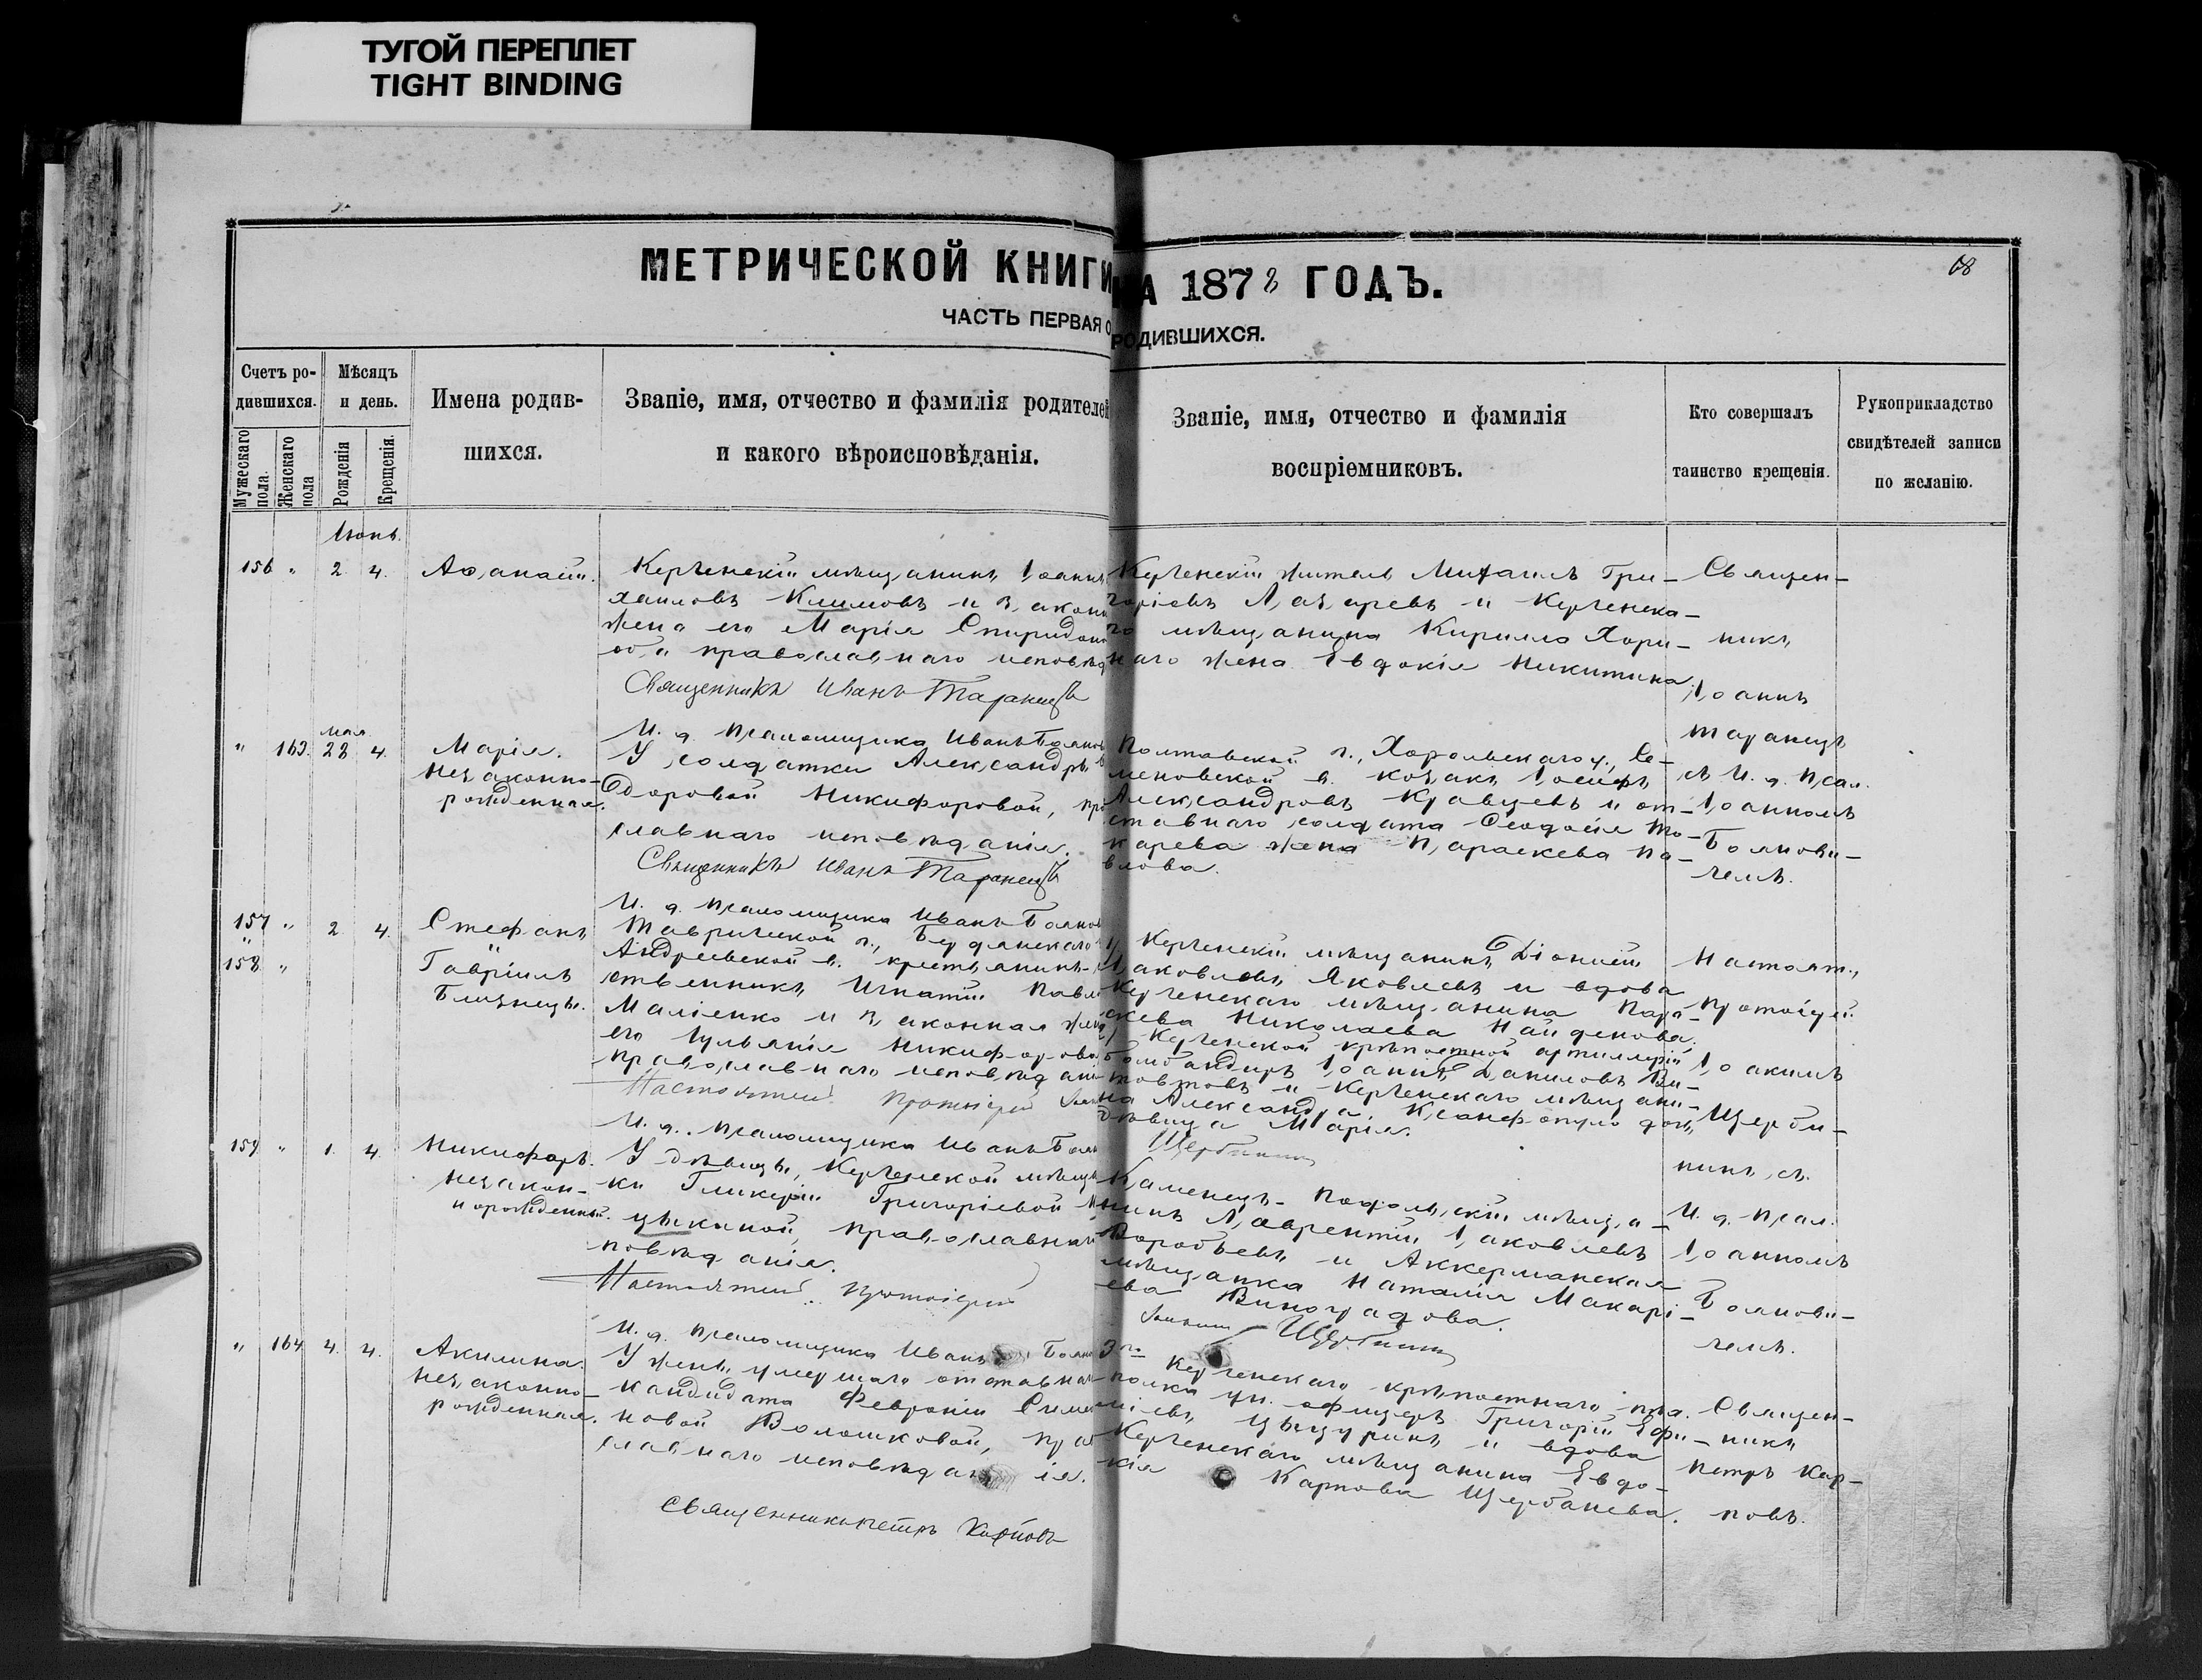 ТУГОЙ ПЕРЕПЛЕТ
TIGHT BINDING
МЕТРИЧЕСКОЙ КНИГИ НА 1878 ГОДЪ.
68
ЧАСТЬ ПЕРВАЯ О РОДИВШИХСЯ.
Счетъ ро-
дившихся.
Мужескаго пола.
Женскаго пола
Мѣсяцъ
и день.
Рожденія
Крещенія.
Имена родив-
шихся.
Званіе, имя, отчество и фамилія родителей
и какого вѣроисповѣданія.
Званіе, имя, отчество и фамилія
воспріемниковъ.
Кто совершалъ
таинство крещенія.
Рукоприкладство
свидѣтелей записи
по желанію.
Іюнь.
156 " 2 4.
Аѳанасій.
Керченскій мѣщанинъ Іоаннъ
хаиловъ Климовъ и закон
жена его Марія Спиридон
оба православнаго исповѣд
Священникъ Иванъ Таранецъ
И. д. псаломщика Иванъ Боянов
Керченскій житель Михаилъ Гри-
горіевъ Лазаревъ и Керченска-
го мѣщанина Кирилла Хари-
наго жена Евдокія Никитина.
Священ-
никъ
Іоаннъ
Таранецъ
съ И. д. псал.
Іоанномъ
Боянови-
чемъ.
" 163. мая 28 4.
Марія.
незаконно-
рожденная.
У солдатки Александры
Ѳдоровой Никифоровой, пра
славнаго исповѣданія.
Священникъ Иванъ Таранецъ
И. д. псаломщика Иванъ Боянов
Полтавской г., Хорольскаго у., Се-
меновской в. козакъ Іосифъ
Александровъ Кравцевъ и от-
ставнаго солдата Ѳеодосія То-
карева жена Параскева Па-
влова.
157 " 2 4.
158 "
Стефанъ
"
Гавріилъ
Близнецы.
Таврической г., Бердянскаго у
Андреевской в. крестьянинъ-
ственникъ Игнатій Павл
Маліенко и законная жена
его Іуліанія Никифорова
православнаго исповѣдані
Настоятель протоіерей
И. д. псаломщика Иванъ Боян
Керченскій мѣщанинъ Діонисій
Іаковлевъ Яковлевъ и вдова
Керченскаго мѣщанина Пара-
скева Николаева Найденова.
Керченской крѣпостной артиллеріи
бомбандиръ Іоаннъ Даниловъ Ви-
товтовъ и Керченскаго мѣщани-
на Александра Ксанфопуло дочь
дѣвица Марія.
Щербининъ
Настоят.,
протоіерей
Іоакимъ
Щерби-
нинъ, съ
И. д. псал.
Іоанномъ
Боянови-
чемъ.
159 " 1. 4.
Никифоръ.
незакон-
норожденный.
У дѣвицы, Керченской мѣща
ки Гликеріи Григоріевой
цыкиной, православнаго
повѣданія.
Настоятель протоіерей
И. д. псаломщика Иванъ Боян
Каменецъ-Подольскій мѣща-
нинъ Лаврентій Іаковлевъ
Воробьевъ и Аккерманская
мѣщанка Наталія Макарі-
ева Виноградова.
Іоакимъ Щербининъ
" 164 4. 4.
Акилина.
незаконно-
рожденная.
У жены умершаго отставна
кандидата Февроніи Симе
новой Волошковой, прав
славнаго исповѣданія.
Священникъ Петръ Карповъ
Керченскаго крѣпостнаго
полка ун. офицеръ Григорій Ефи-
міевъ Цыцуринъ и вдова
Керченскаго мѣщанина Евдо-
кія Карпова Щербанева.
Священ-
никъ
Петръ Кар-
повъ.